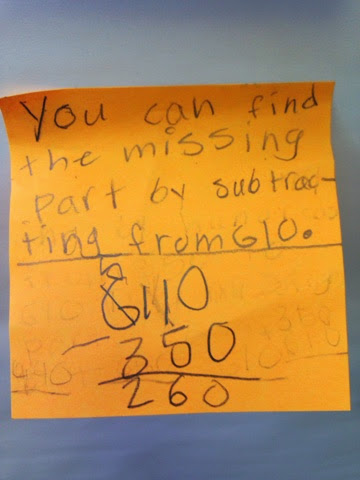 You can find
the missing
part by subtrac-
ting from 610.
5
6110
- 350
260